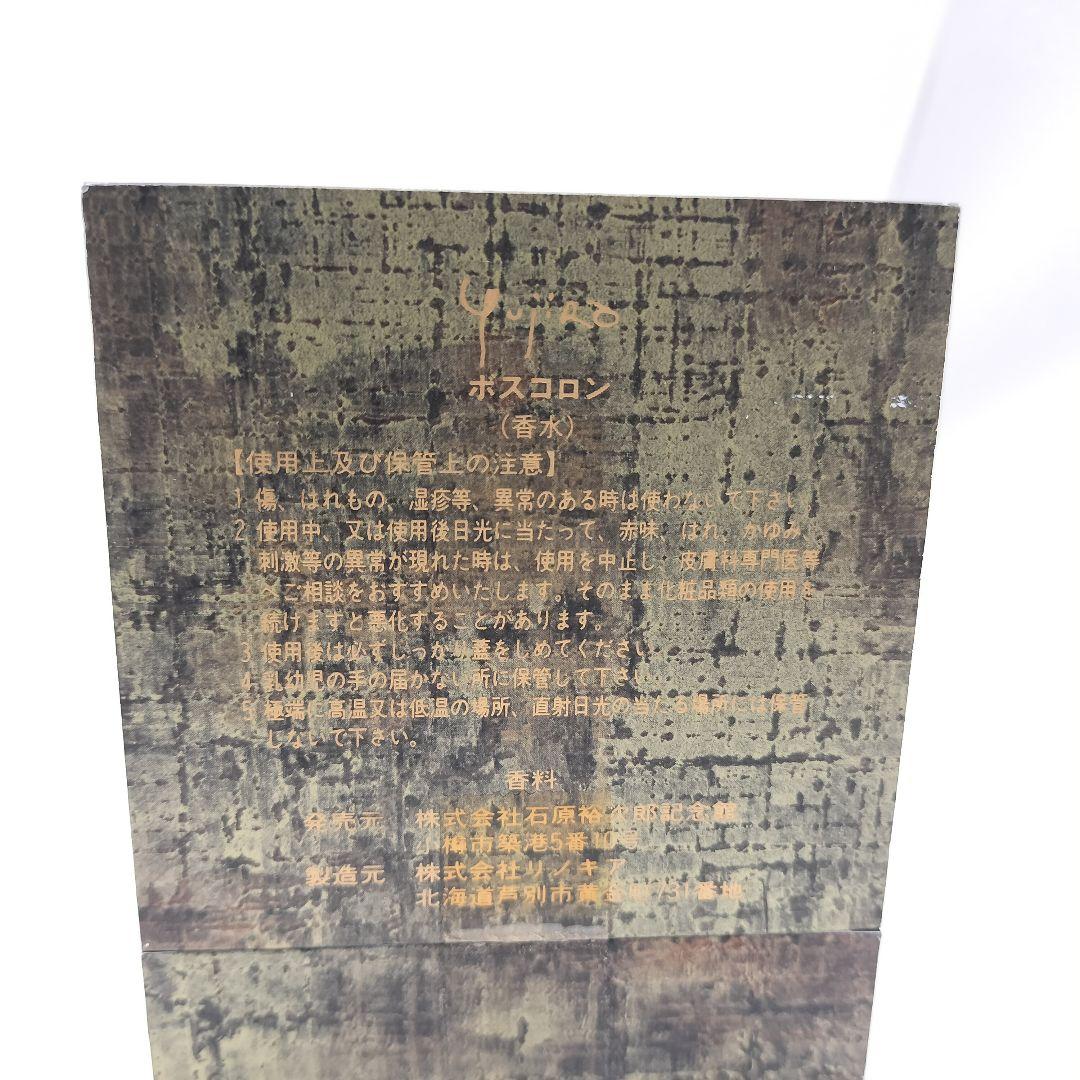 Yujiro
ボスコロン
(香水)
【使用上及び保管上の注意】
1 傷、はれもの、湿疹等、異常のある時は使わないで下さい
2 使用中、又は使用後日光に当たって、赤味、はれ、かゆみ、
刺激等の異常が現れた時は、使用を中止し、皮膚科専門医等
へご相談をおすすめいたします。そのまま化粧品類の使用を
続けますと悪化することがあります。
3 使用後は必ずしっかり蓋をしめてください
4 乳幼児の手の届かない所に保管して下さい
5 極端に高温又は低温の場所、直射日光の当たる場所には保管
しないで下さい。
香料
発売元 株式会社石原裕次郎記念館
小樽市築港5番10号
製造元 株式会社リノキア
北海道芦別市黄金町731番地